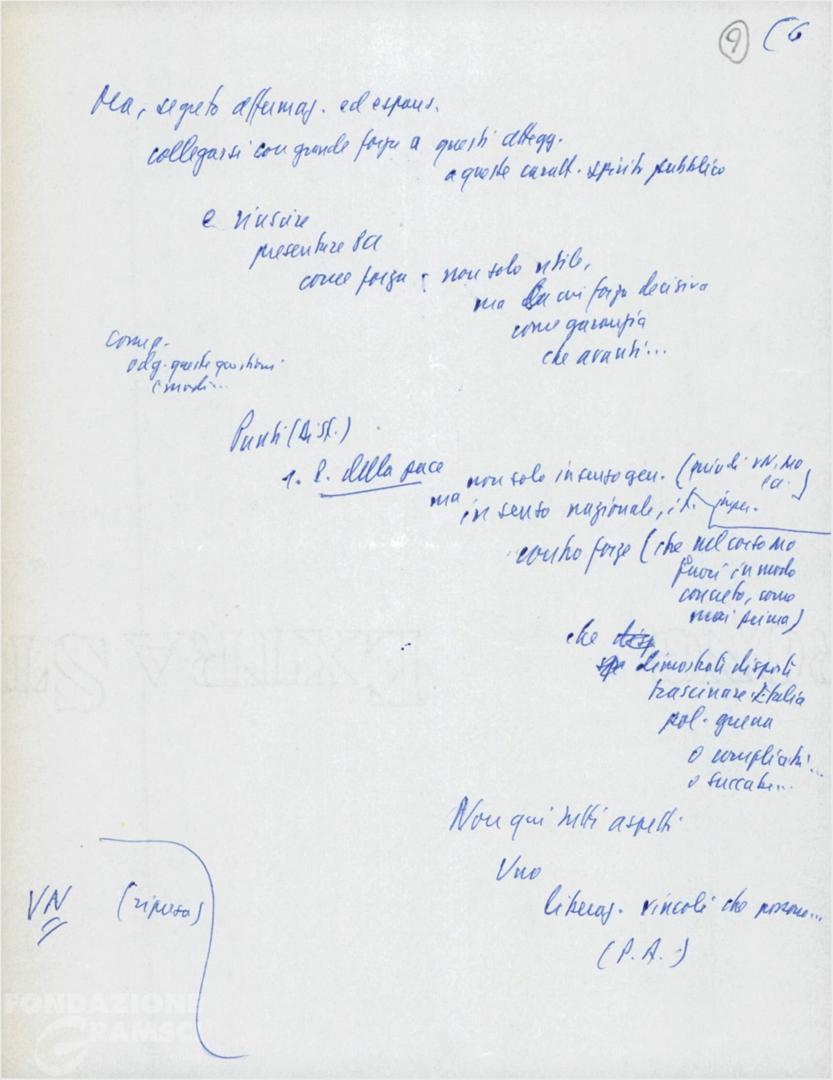 9 (6
Ma, segreto affermaz. ed espans.
collegarsi con grande forza a questi attegg.
a queste caratt. spirito pubblico
e riuscire
presentare
come forza: non solo utile,
ma forza decisiva
come garanzia
che avanti...
come p.
odg. queste questioni
Punti (Dist.)
1. P. della pace
non solo in senso gen. (quindi VN, MO
ma
in senso nazionale, it. imper.
contro forze (che nel corso MO
fuori in modo
concreto, come
mai prima)
che
dimostrati disposti
trascinare Italia
pol. guerra
o complici...
o succubi...
Non qui tutti aspetti
Uno
liberaz. vincoli che possono...
(P.A.)
VN (ripresa)
FONDAZIONE
GRAMSCI
EXTRA ST